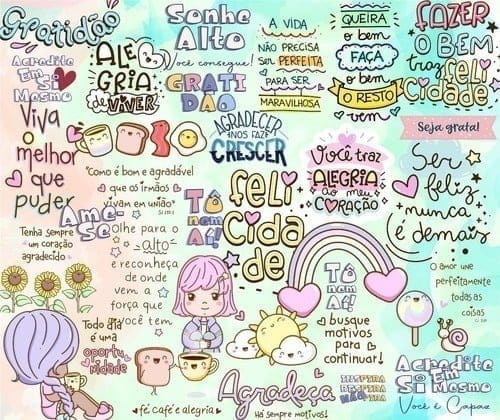 Gratidão
Acredite
Em
Si
Mesmo
ALE
GRIA
de VIVER
Sonhe
Alto
você consegue!
GRATI
DÃO
A VIDA
NÃO PRECISA
Ser PERFEITA
PARA SER
MARAVILHOSA
QUEIRA
o bem
FAÇA
o bem
O RESTO
vem
FAZER
O BEM
traz
feli
Cidade
Seja grata!
Viva
o
melhor
que
puder
AGRADECER
NOS FAZ
CRESCER
"Como é bom e agradável
que os irmãos
vivam em união"
Você traz
ALEGRIA
ao meu
CORAÇÃO
Ser
feliz
nunca
é demais
Ame-
Se
Tenha sempre
um coração
agradecido
Olhe para o
alto
e reconheça
de onde
vem a
força que
você tem
Tô
nem
Aí!
feli
cida
de
Tô
nem
Aí!
busque
motivos
para
continuar!
O amor une
perfeitamente
todas as
coisas
Todo dia
é uma
oportu
nidade
fé café e alegria
Agradeça
Há sempre motivos!
INSPIRA
RESPIRA
NÃO PIRA
Acredite
Em
Si Mesmo
Você é Capaz